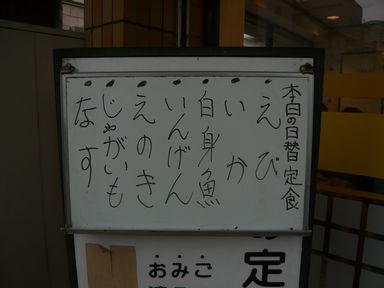 本日の日替定食
・えび
・いか
・白身魚
・いんげん
・えのき
・じゃがいも
・なす
定
おみご